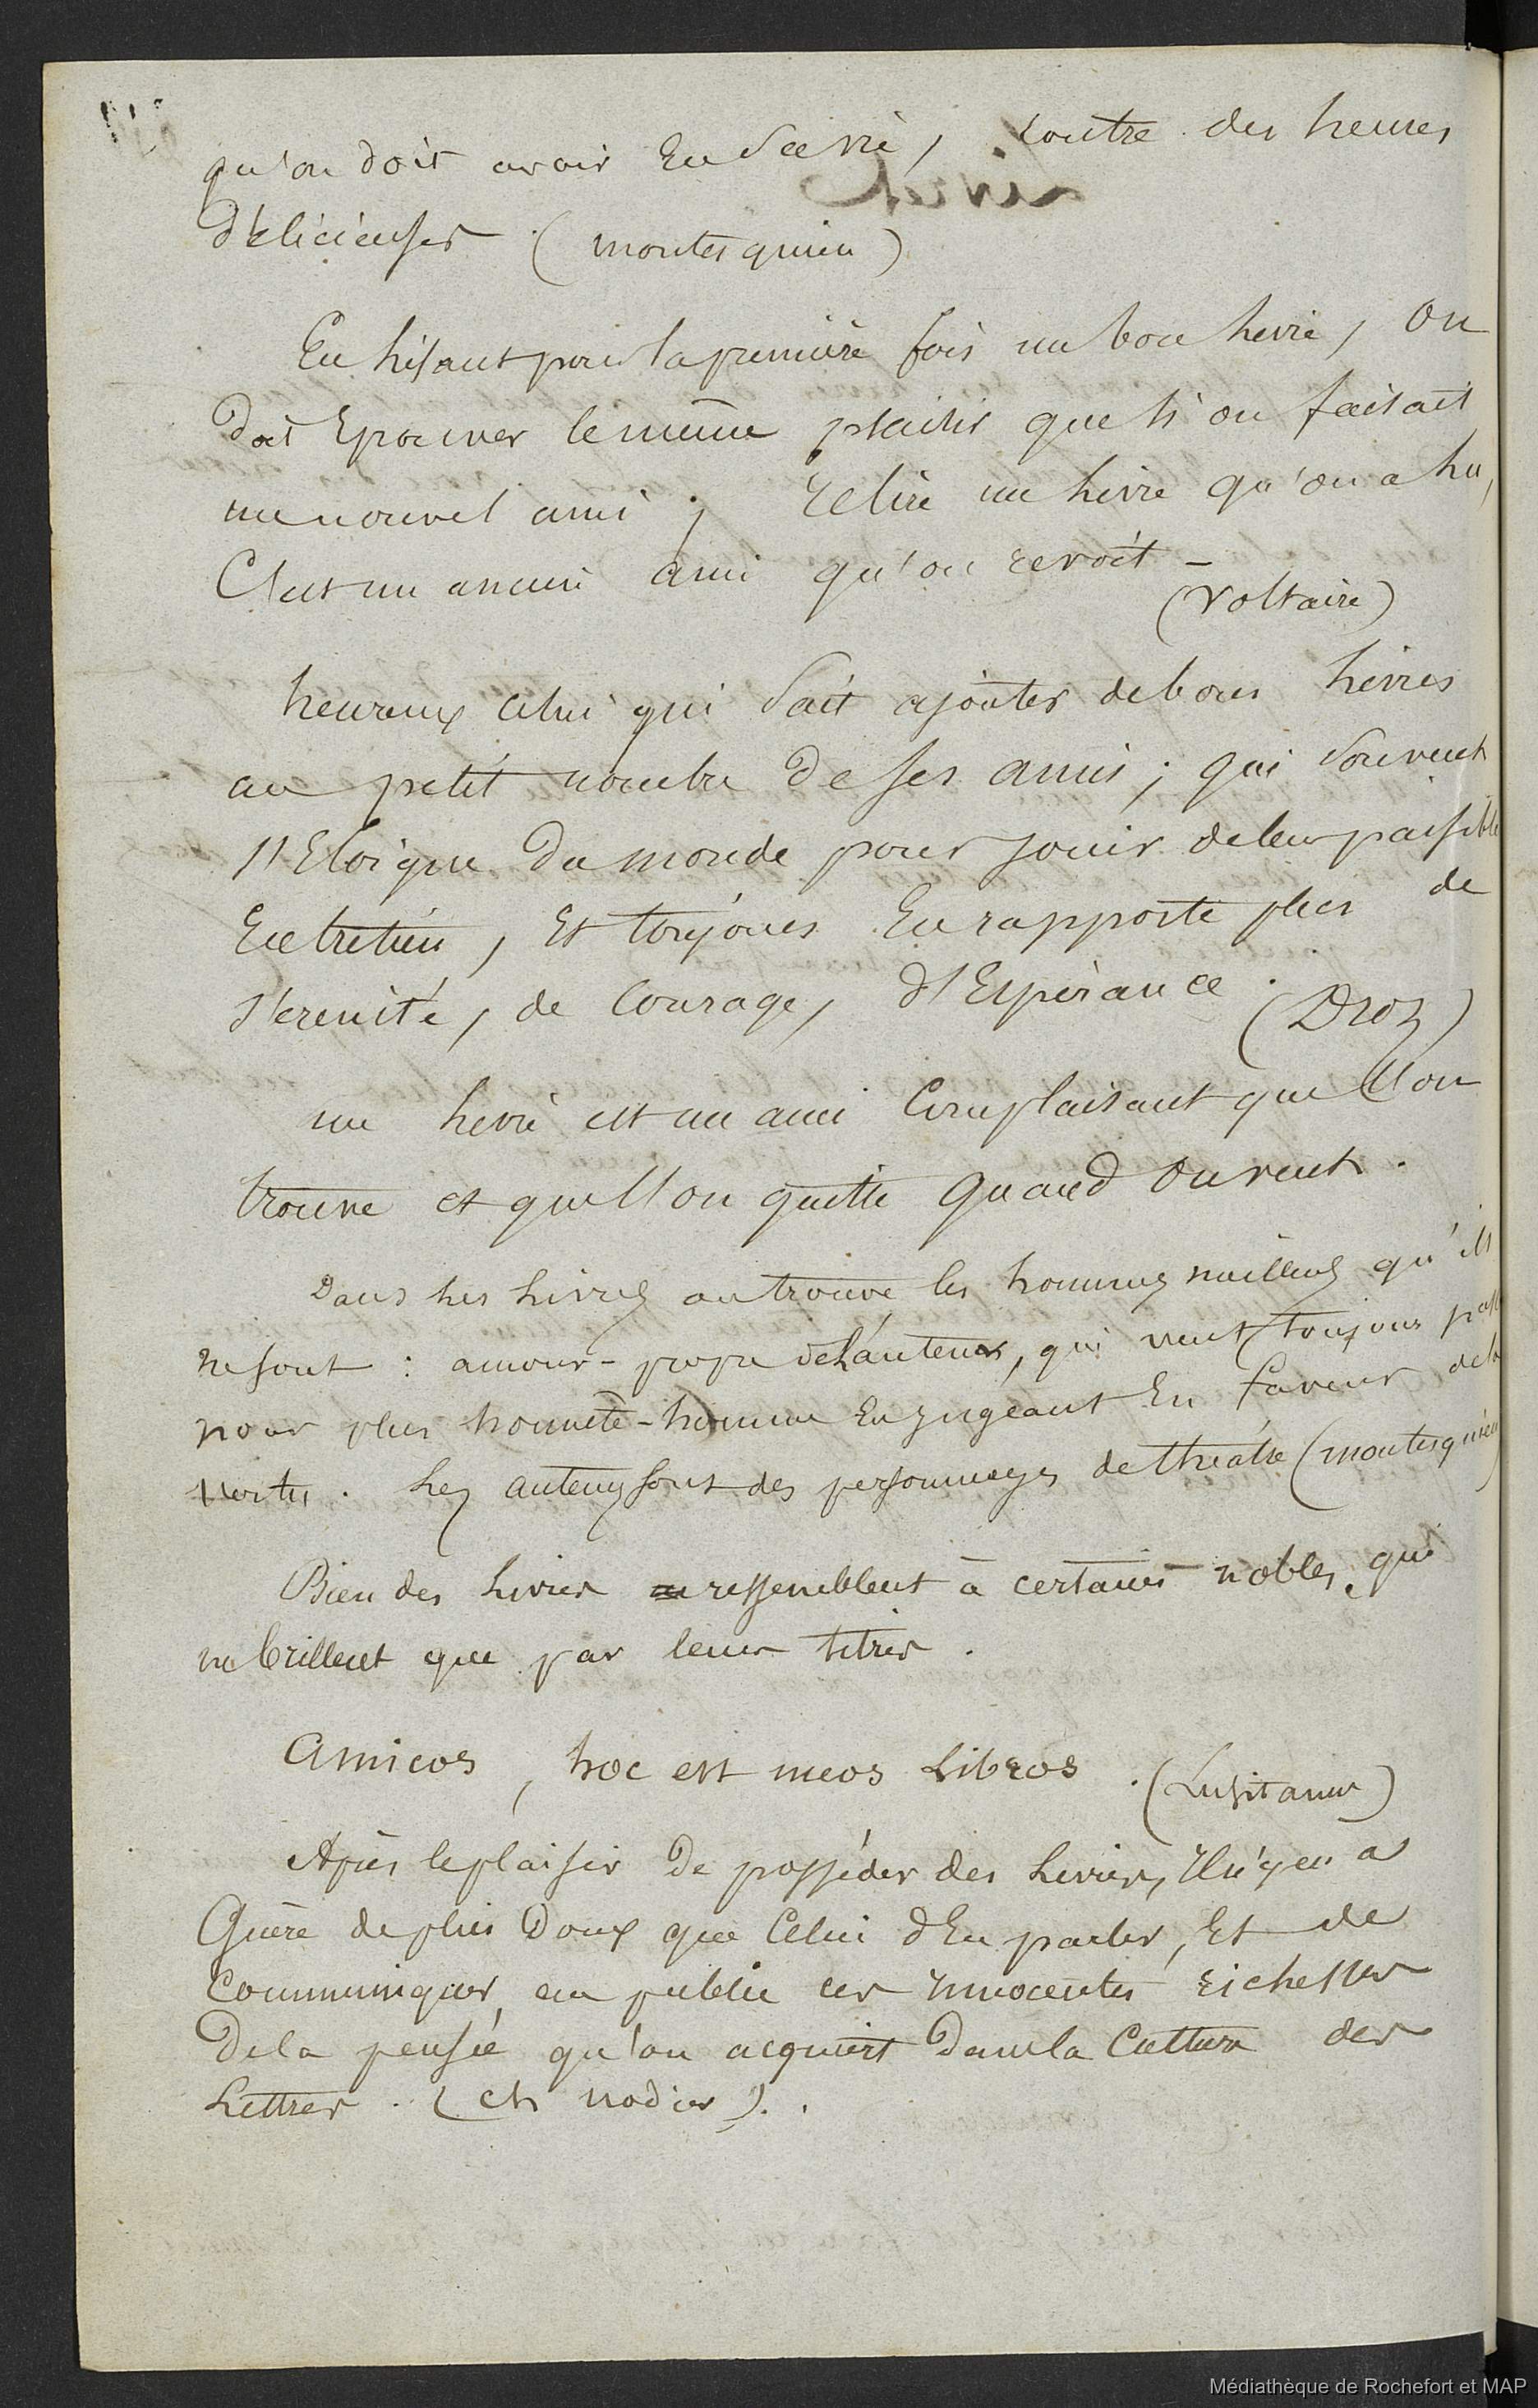 qu'on doit avoir En Sa vie, contre des heures
délicieuses (montesquieu)
En lisant pour la première fois un bon livre, on
doit Eprouver le même plaisir que si on faisait
un nouvel ami ; relire un livre qu'on a lu,
C'est un ancien ami qu'on revoit -
(Voltaire)
heureux celui qui Sait ajouter de bons livres
au petit nombre de ses amis ; qui Souvent
s'Eloigne du monde pour jouir de leur paisible
Entretien, Et toujours En rapporte plus de
sérénité, de Courage, d'Espérance . (Droz)
un livre est un ami Complaisant que l'on
trouve et que l'on quitte quand on veut .
Dans les Livres on trouve les hommes meilleurs qu'ils
ne sont : amour-propre de L'auteur, qui veut toujours passer
pour plus honnête-homme En jugeant En faveur de la
vertu . Les auteurs sont des personnages de théâtre (montesquieu)
Bien des Livres ressemblent à certains nobles, qui
ne brillent que par leurs titres .
Amicos, hoc est meos Libros . (Lusitanus)
Après le plaisir De posséder des Livres, Il n'y en a
Guère de plus Doux que Celui d'En parler, Et de
Communiquer au public ces Innocentes richesses
De la pensée qu'on acquiert Dans la Culture des
Lettres . (Ch nodier) .
Médiathèque de Rochefort et MAP